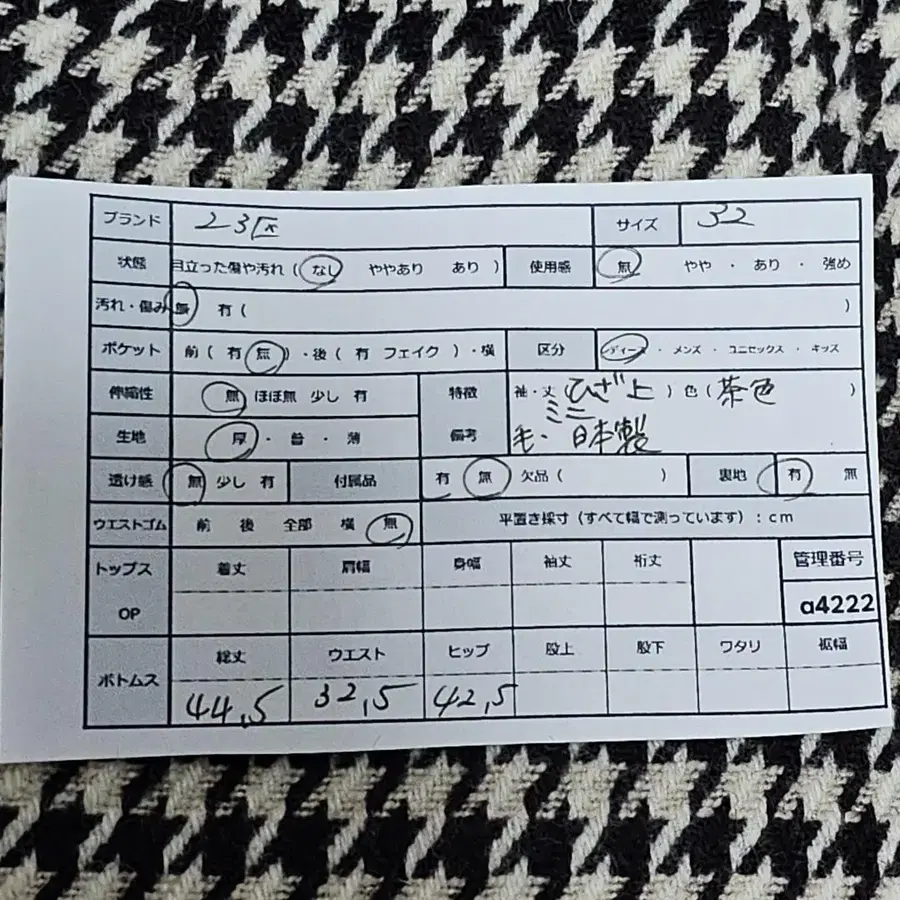 ブランド 23区 サイズ 32
状態 目立った傷や汚れ（なし ややあり あり） 使用感 無 やや・あり・強め
汚れ・傷み 無 有（ ）
ポケット 前（有 無）・後（有 フェイク）・横 区分 レディース・メンズ・ユニセックス・キッズ
伸縮性 無 ほぼ無 少し 有 特徴 袖・丈（ひざ上）色（茶色 ）
ミニ
生地 厚・普・薄 備考 毛・日本製
透け感 無 少し 有 付属品 有 無 欠品（ ） 裏地 有 無
ウエストゴム 前 後 全部 横 無 平置き採寸（すべて幅で測っています）：cm
トップス 着丈 肩幅 身幅 袖丈 裄丈 管理番号
OP a4222
ボトムス 総丈 ウエスト ヒップ 股上 股下 ワタリ 裾幅
44,5 32,5 42,5